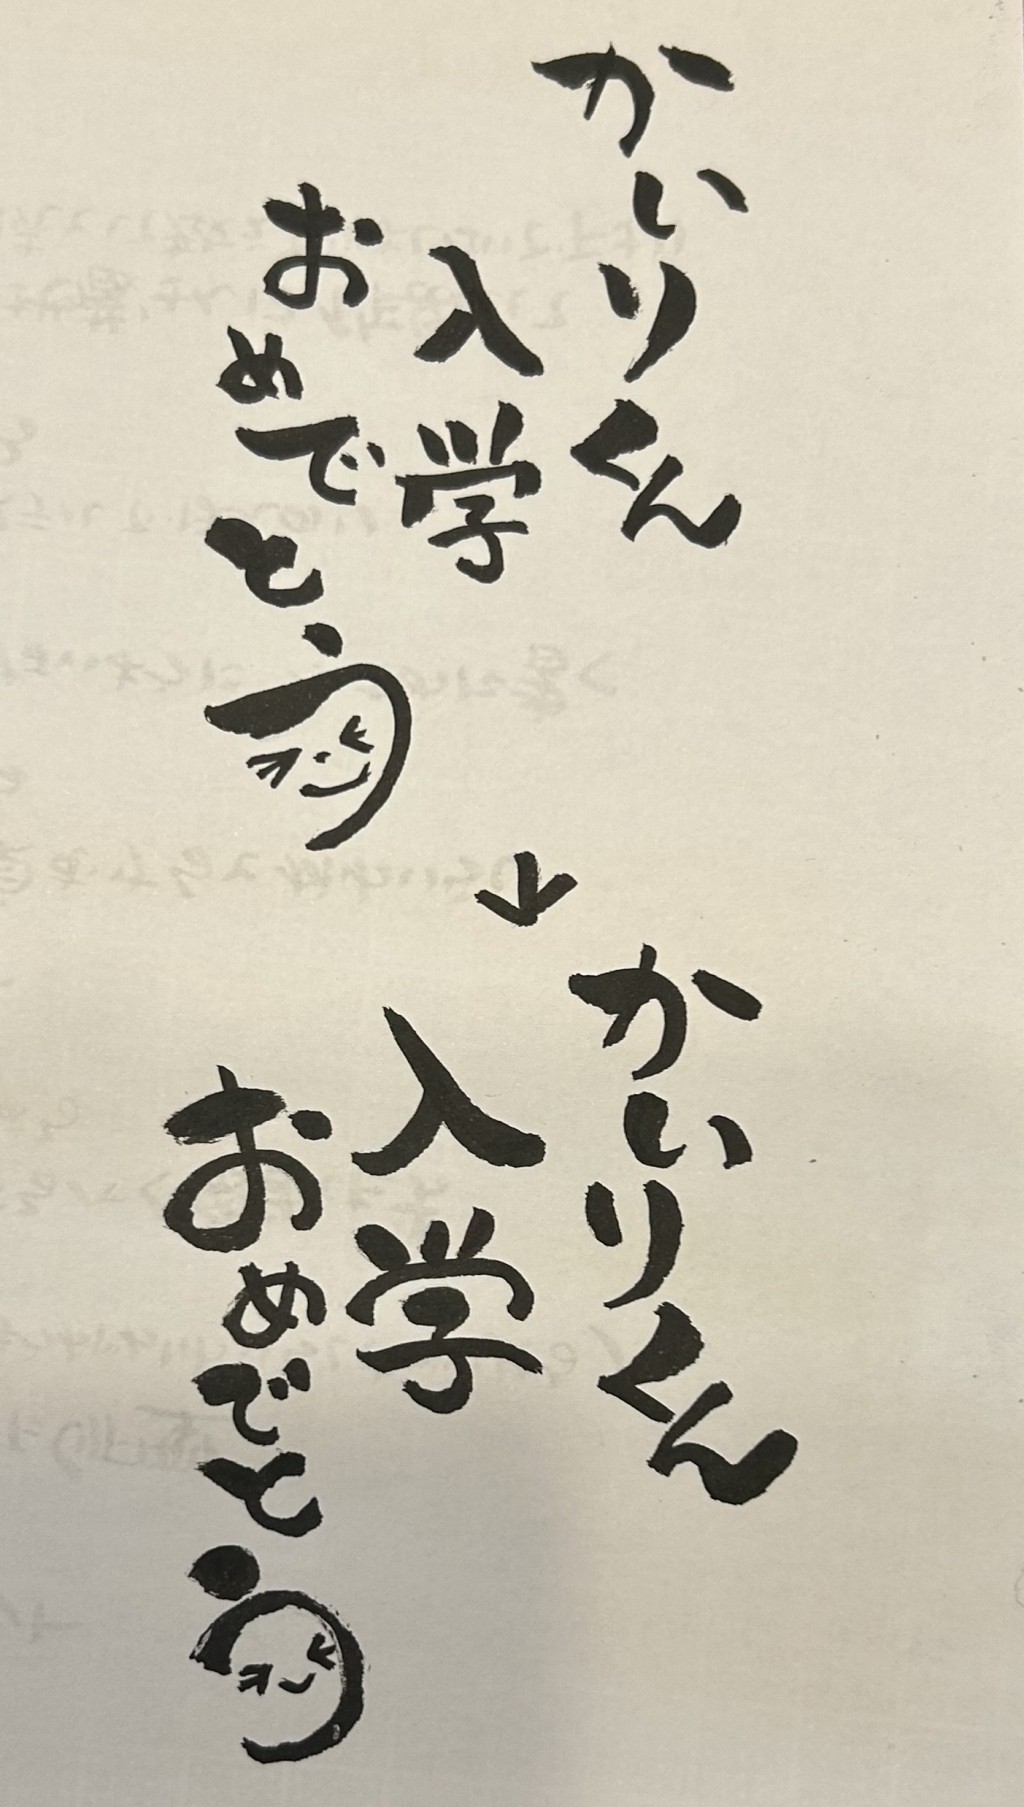 かいりくん
入学
おめでとう
↓
かいりくん
入学
おめでとう